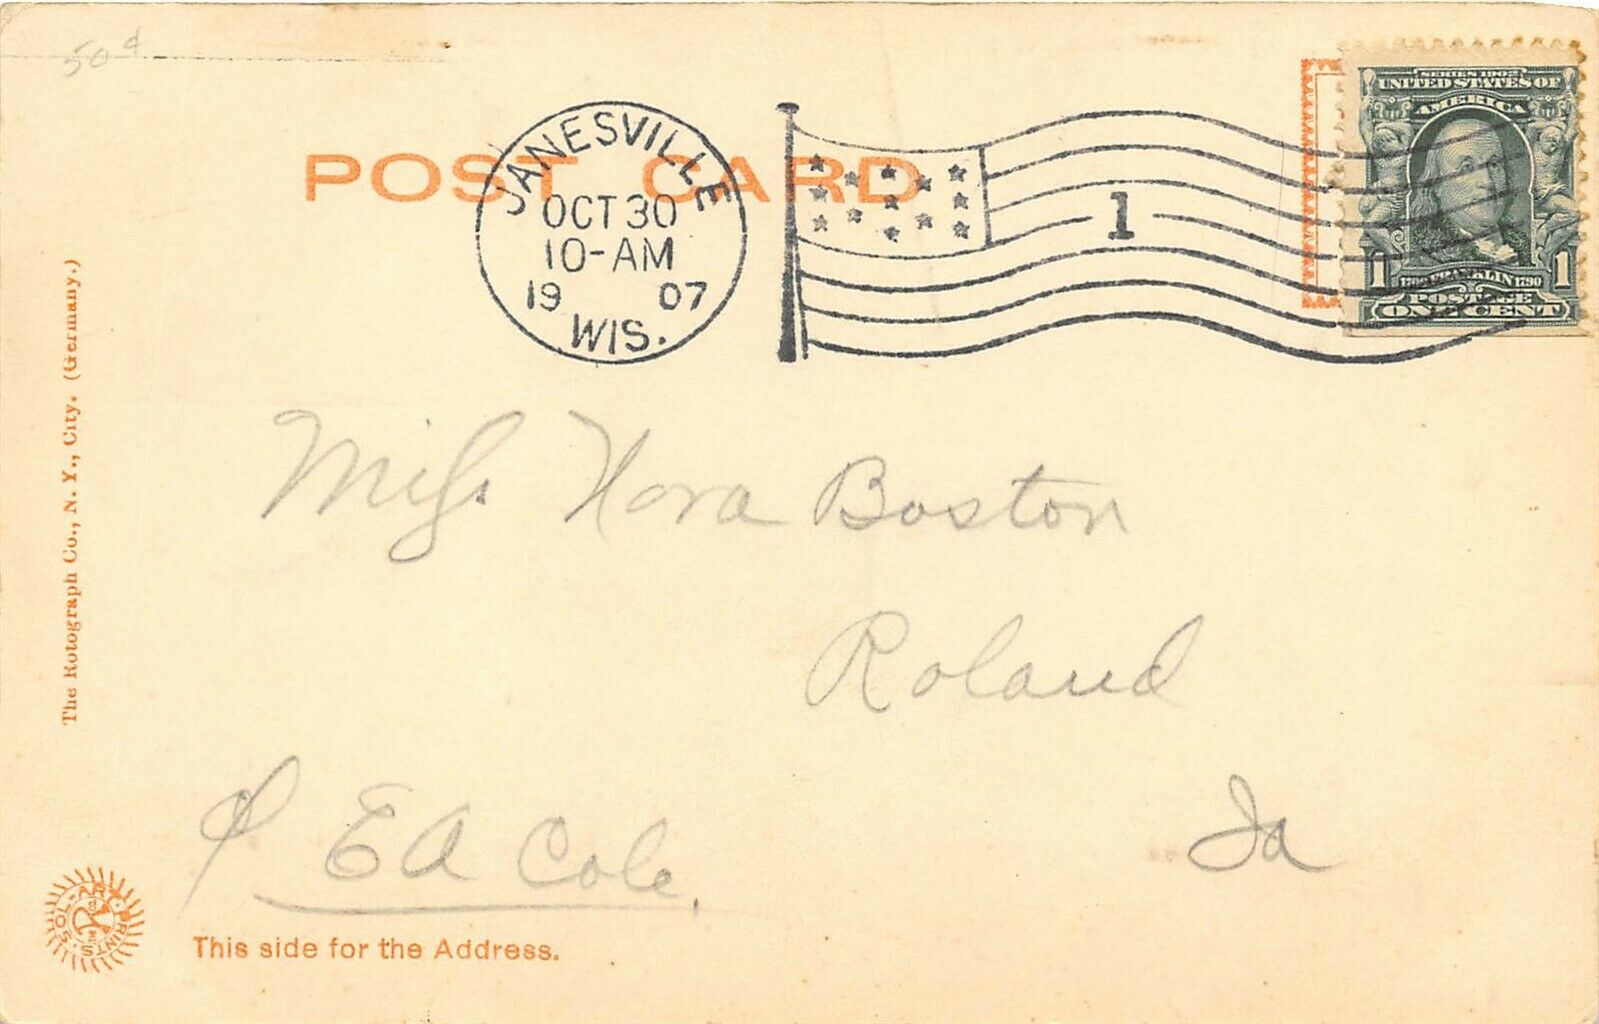 50¢
POST CARD
JANESVILLE
OCT 30
10-AM
19 07
WIS.
1
SERIES 1902
UNITED STATES OF
AMERICA
1 FRANKLIN 1
1706 1790
POSTAGE
ONE CENT
The Rotograph Co., N. Y., City. (Germany.)
Miss Nora Boston
Roland
Ia
℅ E A Cole.
SOL-ART PRINTS
This side for the Address.